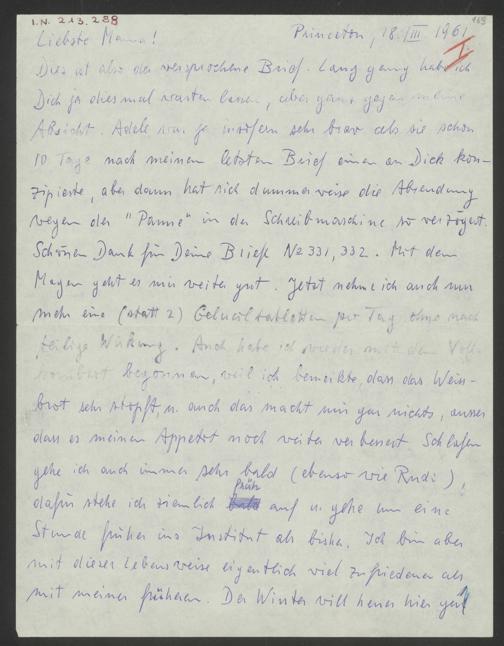 I.N. 213.288
168
Princeton, 18./III 1961.
I
Liebste Mama!
Dies ist also der versprochene Brief. Lang genug habe ich
Dich ja diesmal warten lassen, aber ganz gegen meine
Absicht. Adele war ja insofern sehr brav als sie schon
10 Tage nach meinem letzten Brief einen an Dich kon-
zipierte, aber dann hat sich dummerweise die Absendung
wegen der "Panne" in der Schreibmaschine so verzögert.
Schönen Dank für Deine Briefe No 331, 332. Mit dem
Magen geht es mir weiter gut. Jetzt nehme ich auch nur
mehr eine (statt 2) Gelusiltabletten per Tag ohne nach-
teilige Wirkung. Auch habe ich wieder mit dem Voll-
kornbrot begonnen, weil ich bemerkte, dass das Weiss-
brot sehr stopft u. auch das macht mir gar nichts, ausser
dass es meinen Appetit noch weiter verbessert. Schlafen
gehe ich auch immer sehr bald (ebenso wie Rudi),
dafür stehe ich ziemlich früh auf u. gehe um eine
Stunde früher ins Institut als bisher. Ich bin aber
mit dieser Lebensweise eigentlich viel zufriedener als
mit meiner früheren. Der Winter will heuer hier gar